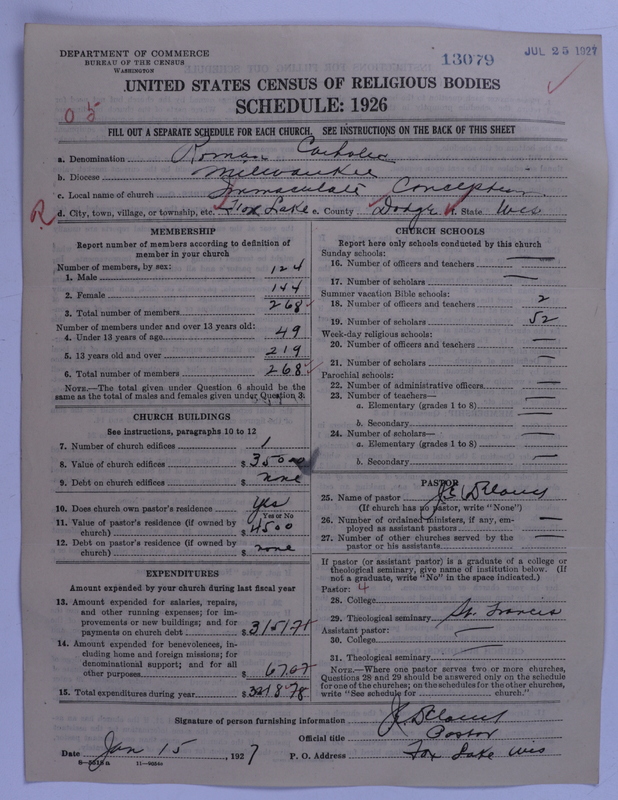 DEPARTMENT OF COMMERCE
BUREAU OF THE CENSUS
WASHINGTON
13079
JUL 25 1927
UNITED STATES CENSUS OF RELIGIOUS BODIES
SCHEDULE: 1926
05
FILL OUT A SEPARATE SCHEDULE FOR EACH CHURCH. SEE INSTRUCTIONS ON THE BACK OF THIS SHEET
a. Denomination Roman Catholic
b. Diocese Milwaukee
c. Local name of church Immaculate Conception
R d. City, town, village, or township, etc. Fox Lake e. County Dodge f. State Wis
MEMBERSHIP
Report number of members according to definition of
member in your church
Number of members, by sex:
1. Male 124
2. Female 144
3. Total number of members 268
Number of members under and over 13 years old:
4. Under 13 years of age 49
5. 13 years old and over 219
6. Total number of members 268
NOTE.—The total given under Question 6 should be the
same as the total of males and females given under Question 3.
CHURCH BUILDINGS
See instructions, paragraphs 10 to 12
7. Number of church edifices 1
8. Value of church edifices $ 35000
9. Debt on church edifices $ none
10. Does church own pastor's residence yes
Yes or No
11. Value of pastor's residence (if owned by
church) $ 4500
12. Debt on pastor's residence (if owned by
church) $ none
EXPENDITURES
Amount expended by your church during last fiscal year
13. Amount expended for salaries, repairs,
and other running expenses; for im-
provements or new buildings; and for
payments on church debt $
14. Amount expended for benevolences, in-
cluding home and foreign missions; for
denominational support; and for all
other purposes $
15. Total expenditures during year $
CHURCH SCHOOLS
Report here only schools conducted by this church
Sunday schools:
16. Number of officers and teachers —
17. Number of scholars —
Summer vacation Bible schools:
18. Number of officers and teachers 2
19. Number of scholars 52
Week-day religious schools:
20. Number of officers and teachers —
21. Number of scholars —
Parochial schools:
22. Number of administrative officers —
23. Number of teachers—
a. Elementary (grades 1 to 8) —
b. Secondary —
24. Number of scholars—
a. Elementary (grades 1 to 8) —
b. Secondary —
PASTOR
25. Name of pastor
(If church has no pastor, write "None")
26. Number of ordained ministers, if any, em-
ployed as assistant pastors —
27. Number of other churches served by the
pastor or his assistants —
If pastor (or assistant pastor) is a graduate of a college or
theological seminary, give name of institution below. (If
not a graduate, write "No" in the space indicated.)
Pastor: 4
28. College
29. Theological seminary St. Francis
Assistant pastor:
30. College —
31. Theological seminary —
NOTE.—Where one pastor serves two or more churches,
Questions 28 and 29 should be answered only on the schedule
for one of the churches; on the schedules for the other churches,
write "See schedule for church."
Signature of person furnishing information
Official title Pastor
Date Jan 15, 1927 P. O. Address Fox Lake Wis